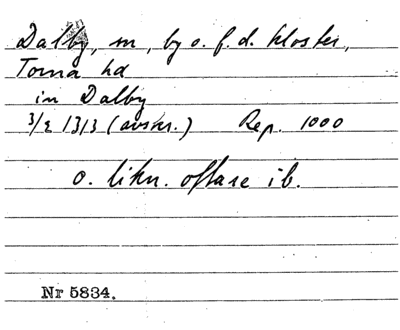 Dalby, sn, by o. f.d. kloster,
Torna hd
in Dalby
3/2 1313 (avskr.) Rep. 1000
o. likn. oftare ib.
Nr 5834.